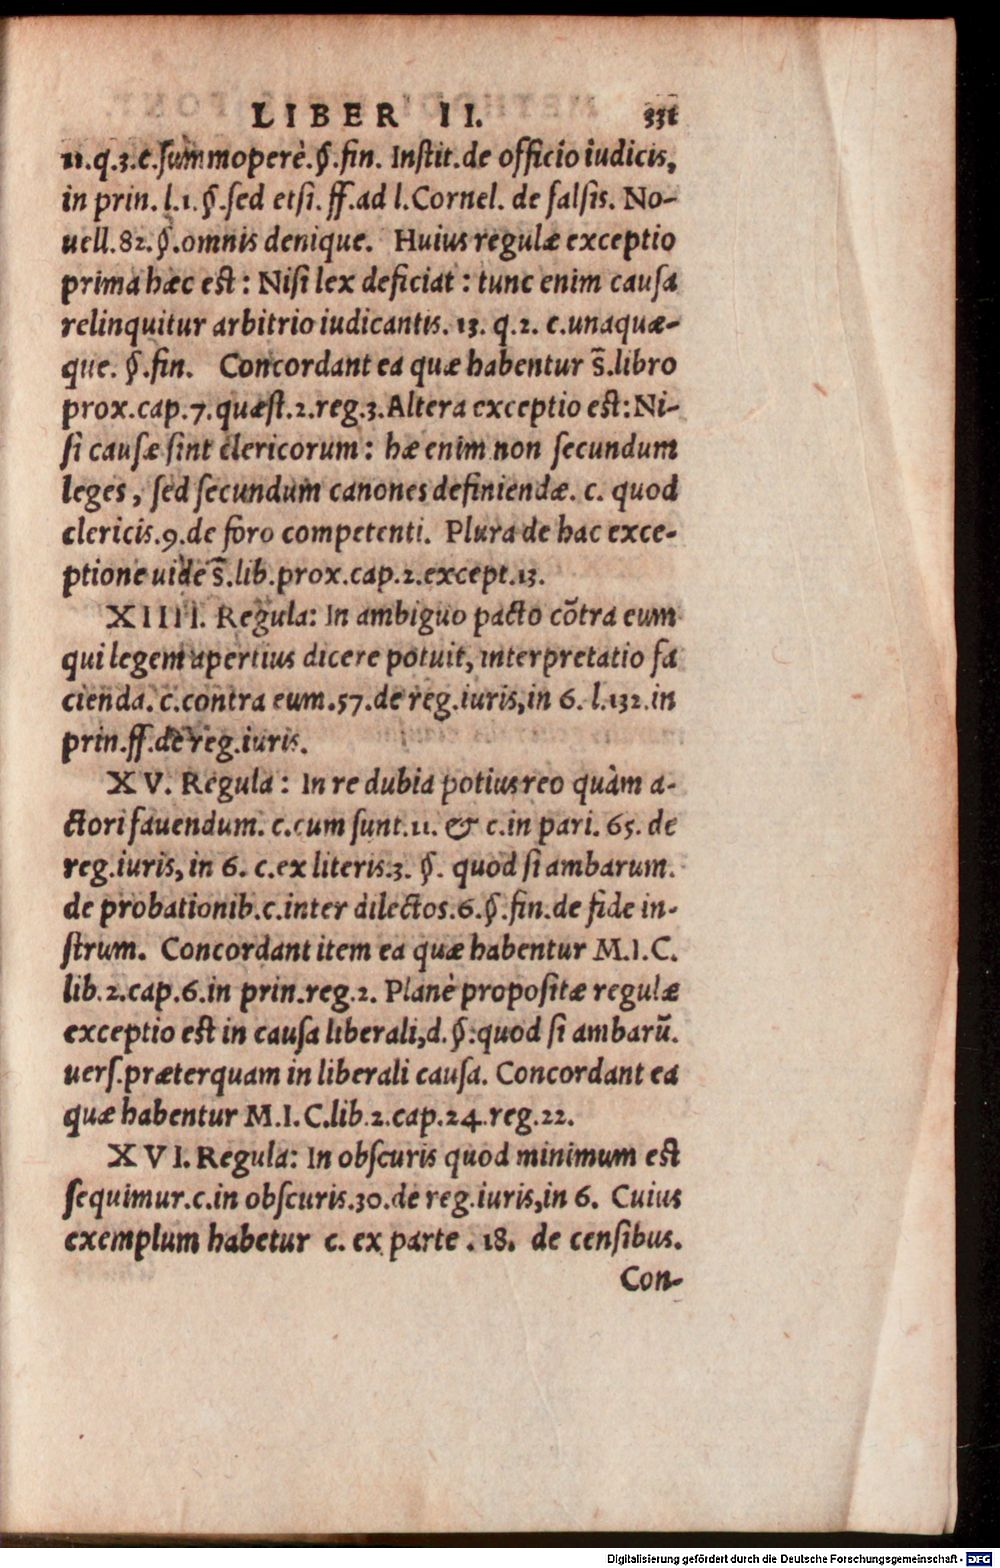 LIBER II. 331
11.q.3.c.ſummoperè.§.fin. Inſtit.de officio iudicis,
in prin. l.1.§.ſed etſi.ff.ad l.Cornel. de falſis. No-
uell.82.§.omnis denique. Huius regulæ exceptio
prima hæc eſt: Niſi lex deficiat: tunc enim cauſa
relinquitur arbitrio iudicantis. 13. q.2. c.unaquæ-
que. §.fin. Concordant ea quæ habentur s̃.libro
prox.cap.7.quæſt.2.reg.3.Altera exceptio eſt:Ni-
ſi cauſæ ſint clericorum: hæ enim non ſecundum
leges, ſed ſecundum canones definiendæ. c. quod
clericis.9.de foro competenti. Plura de hac exce-
ptione uide s̃.lib.prox.cap.2.except.13.
XIIII. Regula: In ambiguo pacto cõtra eum
qui legem apertius dicere potuit, interpretatio fa
cienda. c.contra eum.57.de reg.iuris,in 6. l.132.in
prin.ff.de reg.iuris.
XV. Regula: In re dubia potius reo quàm a-
ctori fauendum. c.cum ſunt.11. & c.in pari. 65. de
reg.iuris, in 6. c.ex literis.3. §. quod ſi ambarum.
de probationib.c.inter dilectos.6.§.fin.de fide in-
ſtrum. Concordant item ea quæ habentur M.I.C.
lib.2.cap.6.in prin.reg.2. Planè propoſitæ regulæ
exceptio eſt in cauſa liberali,d.§.quod ſi ambarũ.
uerſ.præterquam in liberali cauſa. Concordant ea
quæ habentur M.I.C.lib.2.cap.24.reg.22.
XVI. Regula: In obſcuris quod minimum eſt
ſequimur.c.in obſcuris.30.de reg.iuris,in 6. Cuius
exemplum habetur c. ex parte . 18. de cenſibus.
Con-
Digitalisierung gefördert durch die Deutsche Forschungsgemeinschaft - DFG